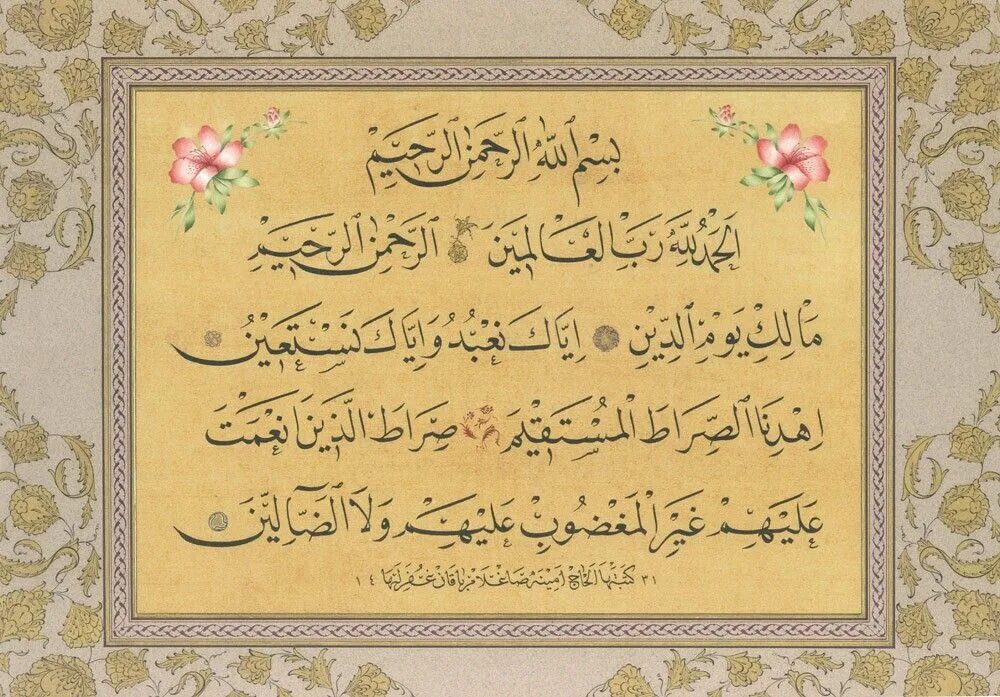 بِسْمِ ٱللّٰهِ ٱلرَّحْمٰنِ ٱلرَّحِيْمِ
اَلْحَمْدُ لِلّٰهِ رَبِّ الْعَالَمِيْنَ اَلرَّحْمٰنِ ٱلرَّحِيْمِ
مَالِكِ يَوْمِ ٱلدِّيْنِ اِيَّاكَ نَعْبُدُ وَاِيَّاكَ نَسْتَعِيْنُ
اِهْدِنَا ٱلصِّرَاطَ الْمُسْتَقِيْمَ صِرَاطَ الَّذِيْنَ اَنْعَمْتَ
عَلَيْهِمْ غَيْرِ الْمَغْضُوْبِ عَلَيْهِمْ وَلَا ٱلضَّآلِّيْنَ
٣١ كتبتها الحاج امينه غفر لها ١٤